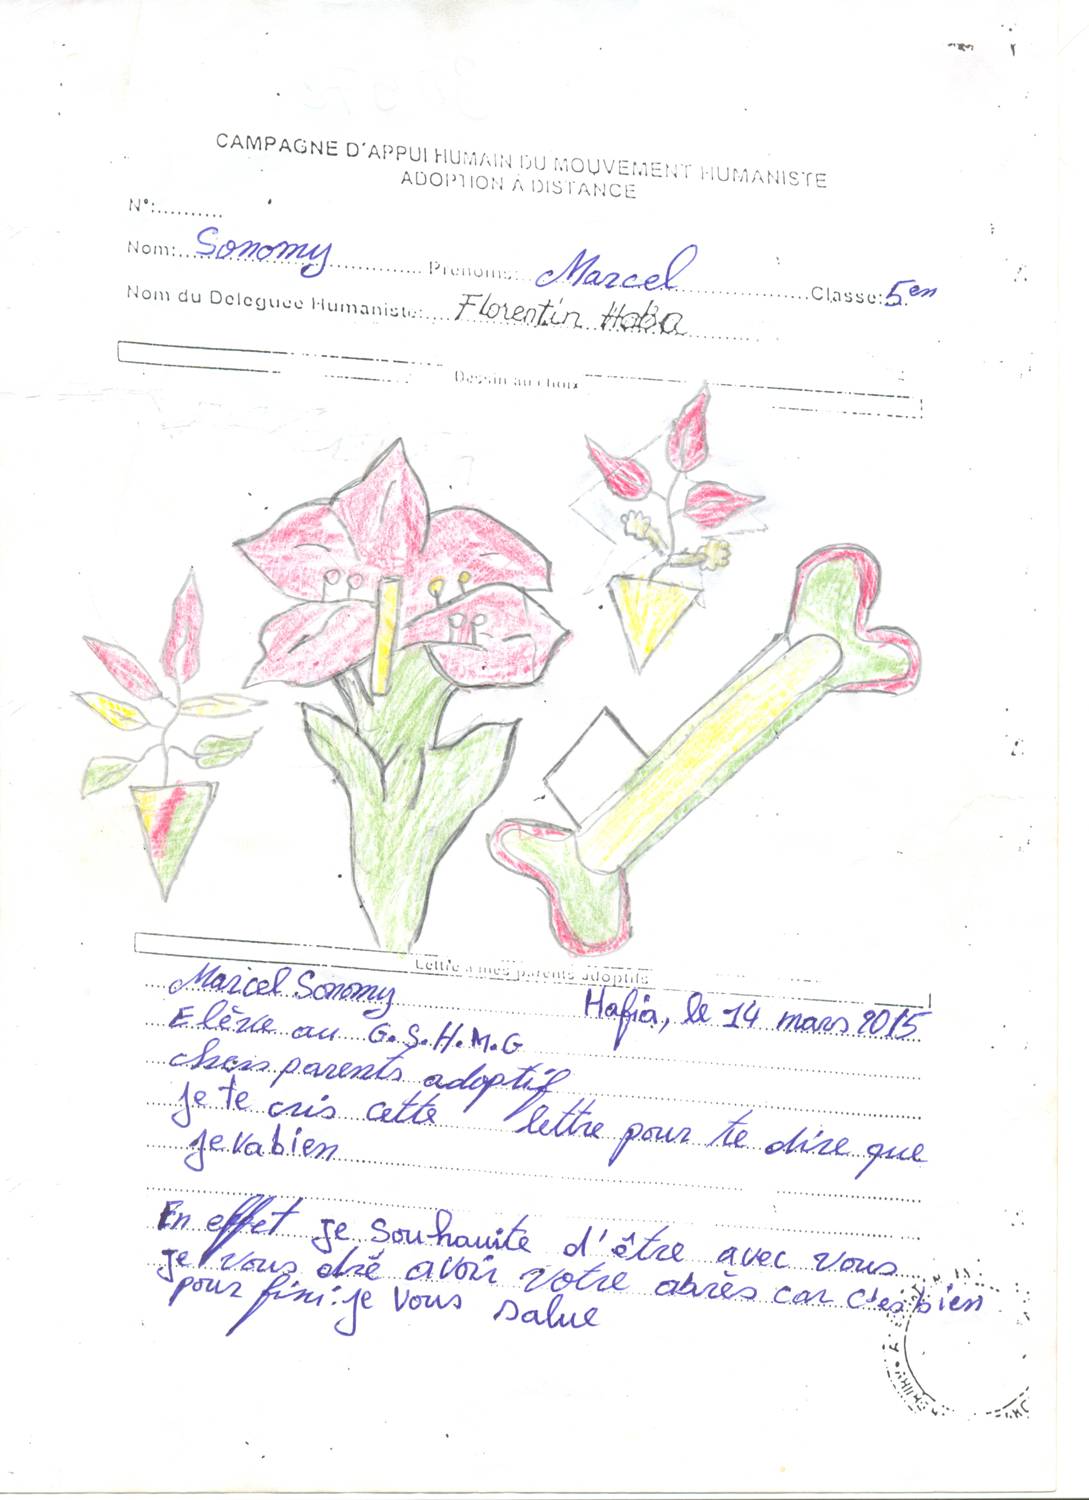 CAMPAGNE D'APPUI HUMAIN DU MOUVEMENT HUMANISTE
ADOPTION À DISTANCE
N°:..........
Nom: Sonomy Prénoms: Marcel Classe: 5en
Nom du Deleguée Humaniste: Florentin Haba
Dessin au choix
Lettre a mes parents adoptifs
Marcel Sonomy Hafia, le 14 mars 2015
Elève au G.S.H.M.G
chers parents adoptif
je te cris cette lettre pour te dire que
je va bien
En effet je souhaite d'être avec vous
je vous dré avoir votre abrès car c'es bien
pour fini: je vous salue